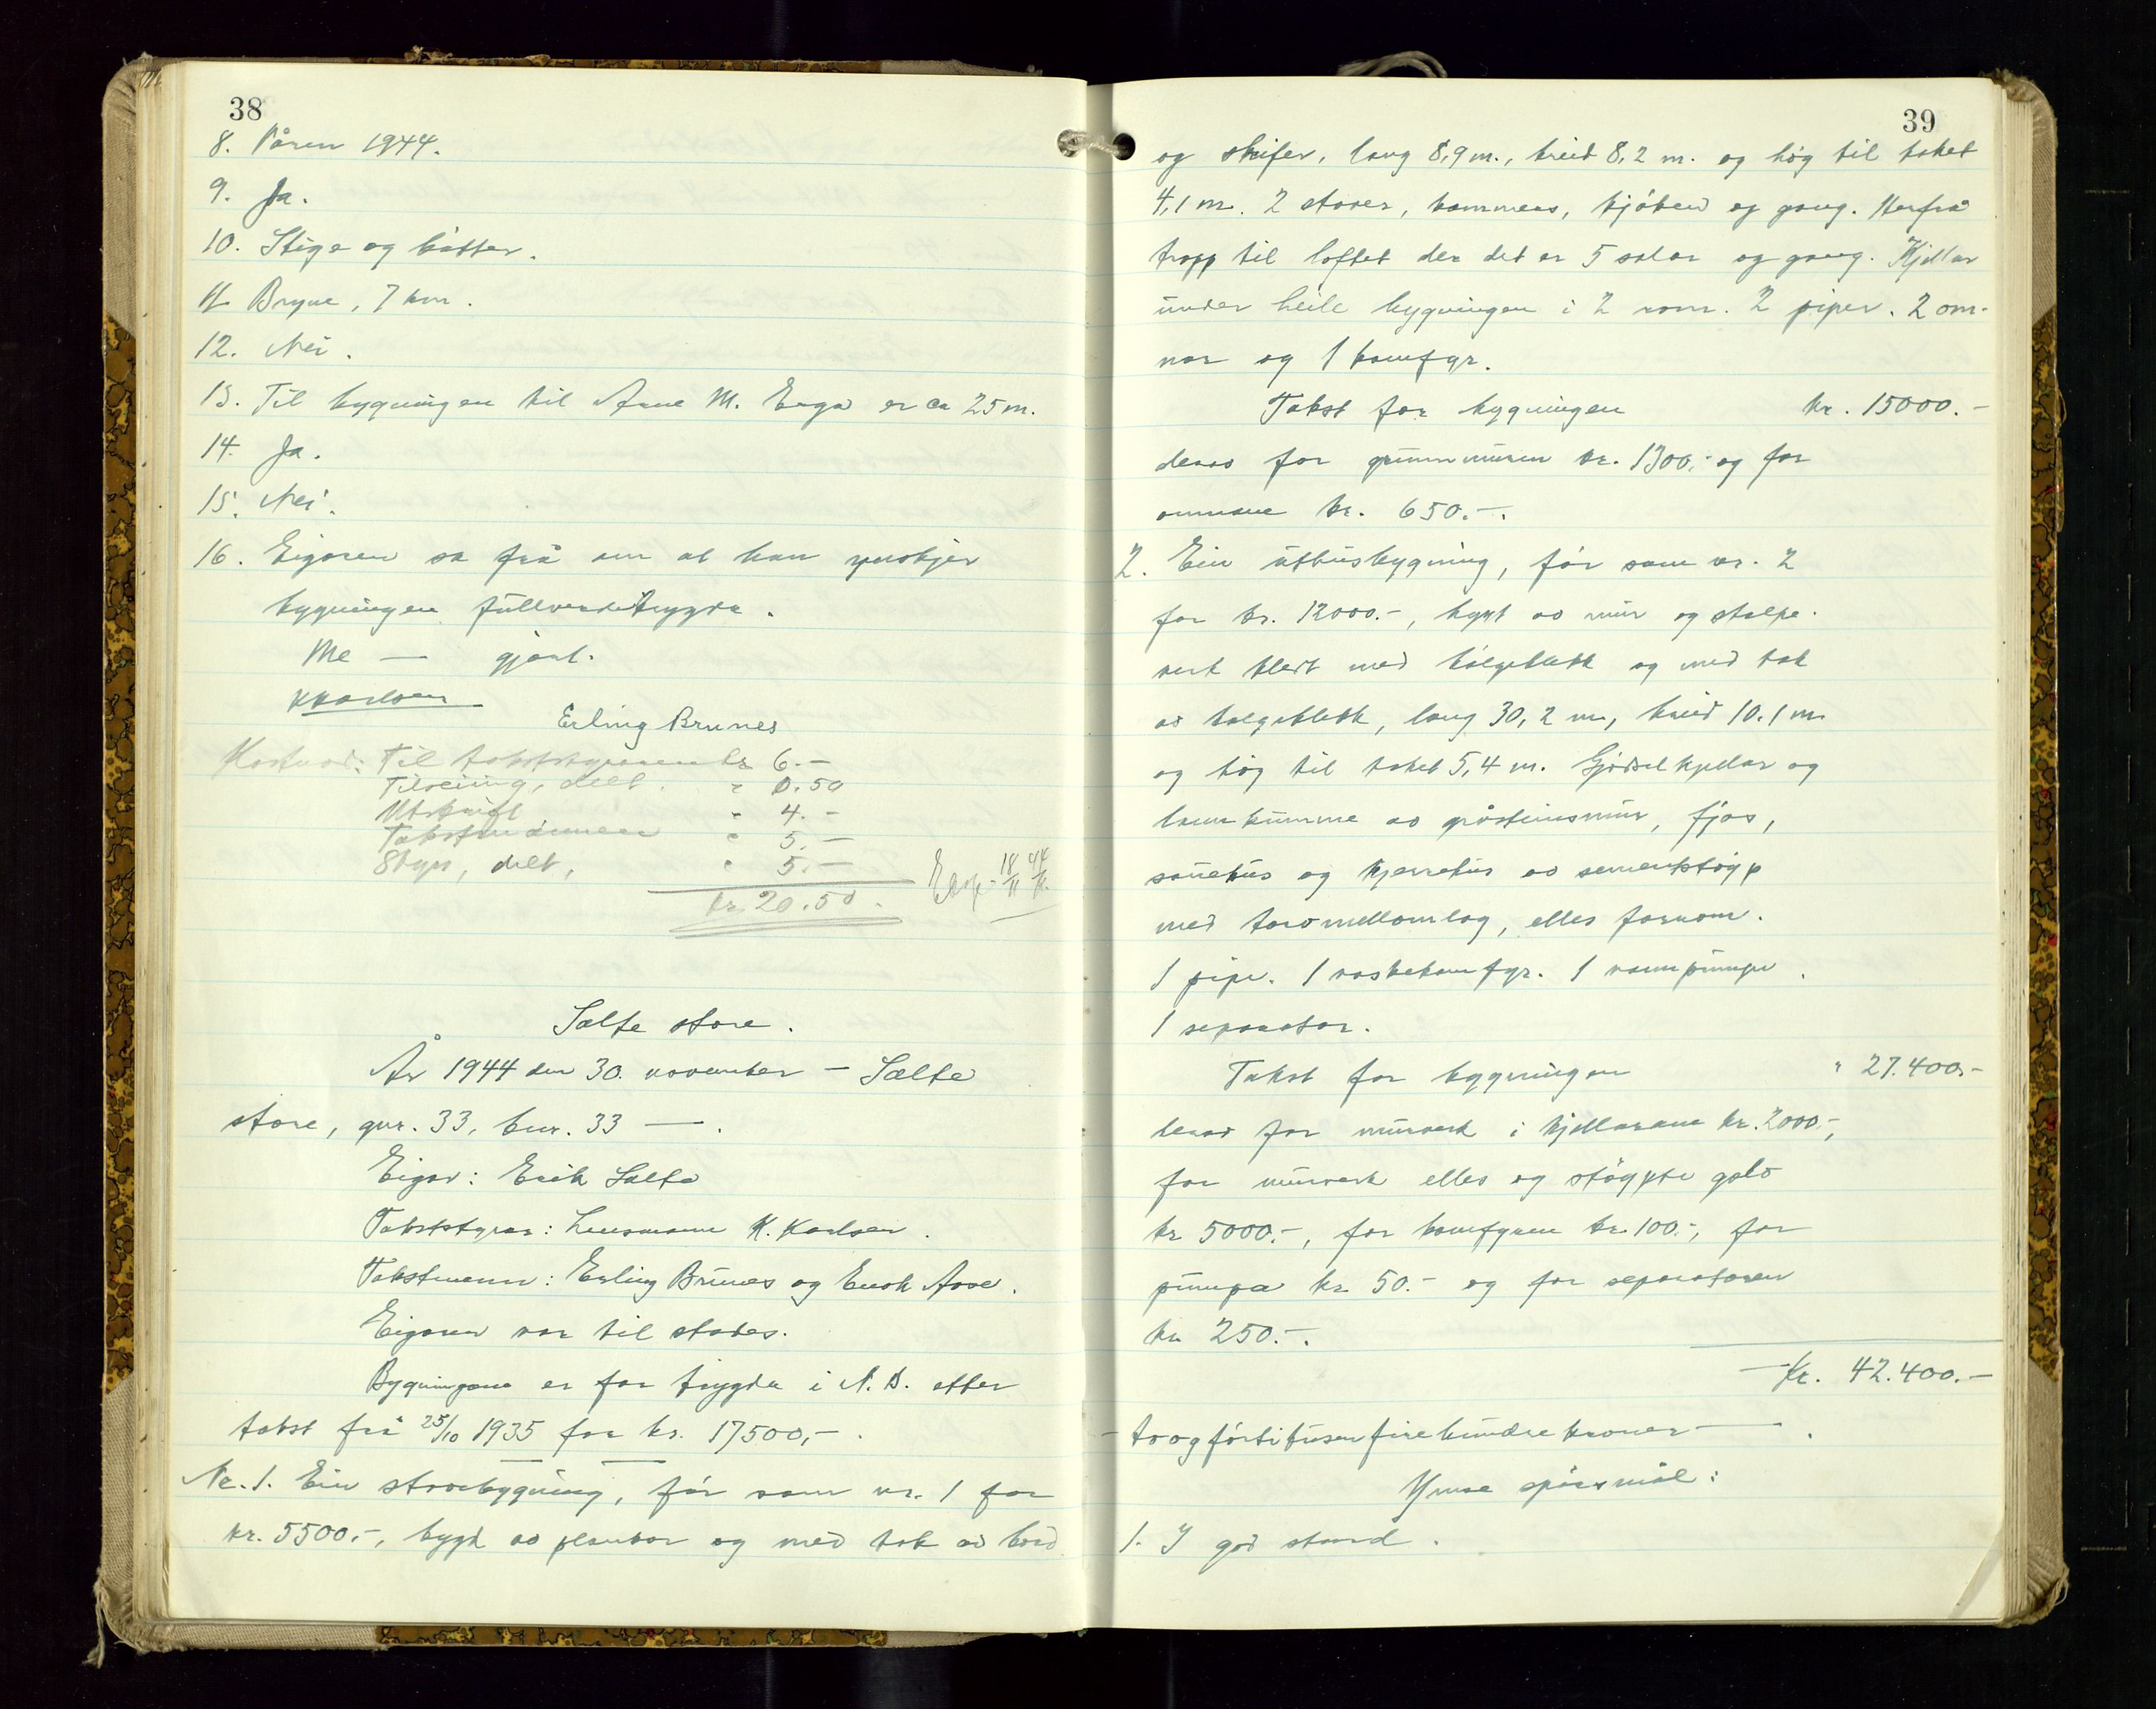 38
8. Våren 1944.
9. Ja.
10. Stige og bøtter.
11. Bryne, 7 km.
12. Nei.
13. Til bygningen til Arne M. Erga er ca 25 m.
14. Ja.
15. Nei.
16. Eigaren sa frå um at han ynskjer
bygningen fullverdetrygda.
Me — gjort.
K Karlsen
Erling Brunes
Kostnad: Til takststyraren kr 6.-
Tilseiing, delt. " 0.50
Utskrift " 4.-
Takstmennene " 5.-
Skyss, delt, " 5.-
kr. 20.50.
Eksp. 18/11 44
Salte store.
År 1944 den 30. november - Salte
store, gnr. 33, bnr. 33 —.
Eigar: Erik Salte
Takststyrar: Lensmann K. Karlsen.
Takstmenn: Erling Brunes og Enok Aase.
Eigaren var til stades.
Bygningane er før trygda i N. B. etter
takst frå 25/10 1935 for kr. 17500,-.
Nr. 1. Ein stovebygning, før som nr. 1 for
kr. 5500.-, bygd av plankar og med tak av bord
39
og skifer, lang 8,9 m., breid 8,2 m. og høg til taket
4,1 m. 2 stover, kammers, kjøken og gang. Herfrå
tropp til loftet der det er 5 salar og gang. Kjellar
under heile bygningen i 2 rom. 2 piper. 2 om-
nar og 1 komfyr.
Takst for bygningen kr. 15000.-
derav for grunnmuren kr. 1300,- og for
omnane kr. 650.-.
2. Ein uthusbygning, før som nr. 2
for kr. 12000.-, bygt av mur og stolpe-
verk kledt med bølgeblekk og med tak
av bølgeblekk, lang 30,2 m, breid 10,1 m
og høg til taket 5,4 m. Gjødselkjellar og
landkumme av gråsteinsmur, fjos,
sauehus og kjerrehus av sementstøyp
med torvmellomlag, elles forrom.
1 pipe. 1 vaskekomfyr. 1 vannpumpe.
1 separator.
Takst for bygningen " 27.400,-
derav for murverk i kjellarane kr. 2000.-,
for murverk elles og støypte golv
kr 5000.-, for komfyren kr. 100.-, for
pumpa kr 50.- og for separatoren
kr 250.-.
Kr. 42.400.-
- toogførtitusenfirehundrekroner — .
Ymse spørsmål:
1. I god stand.